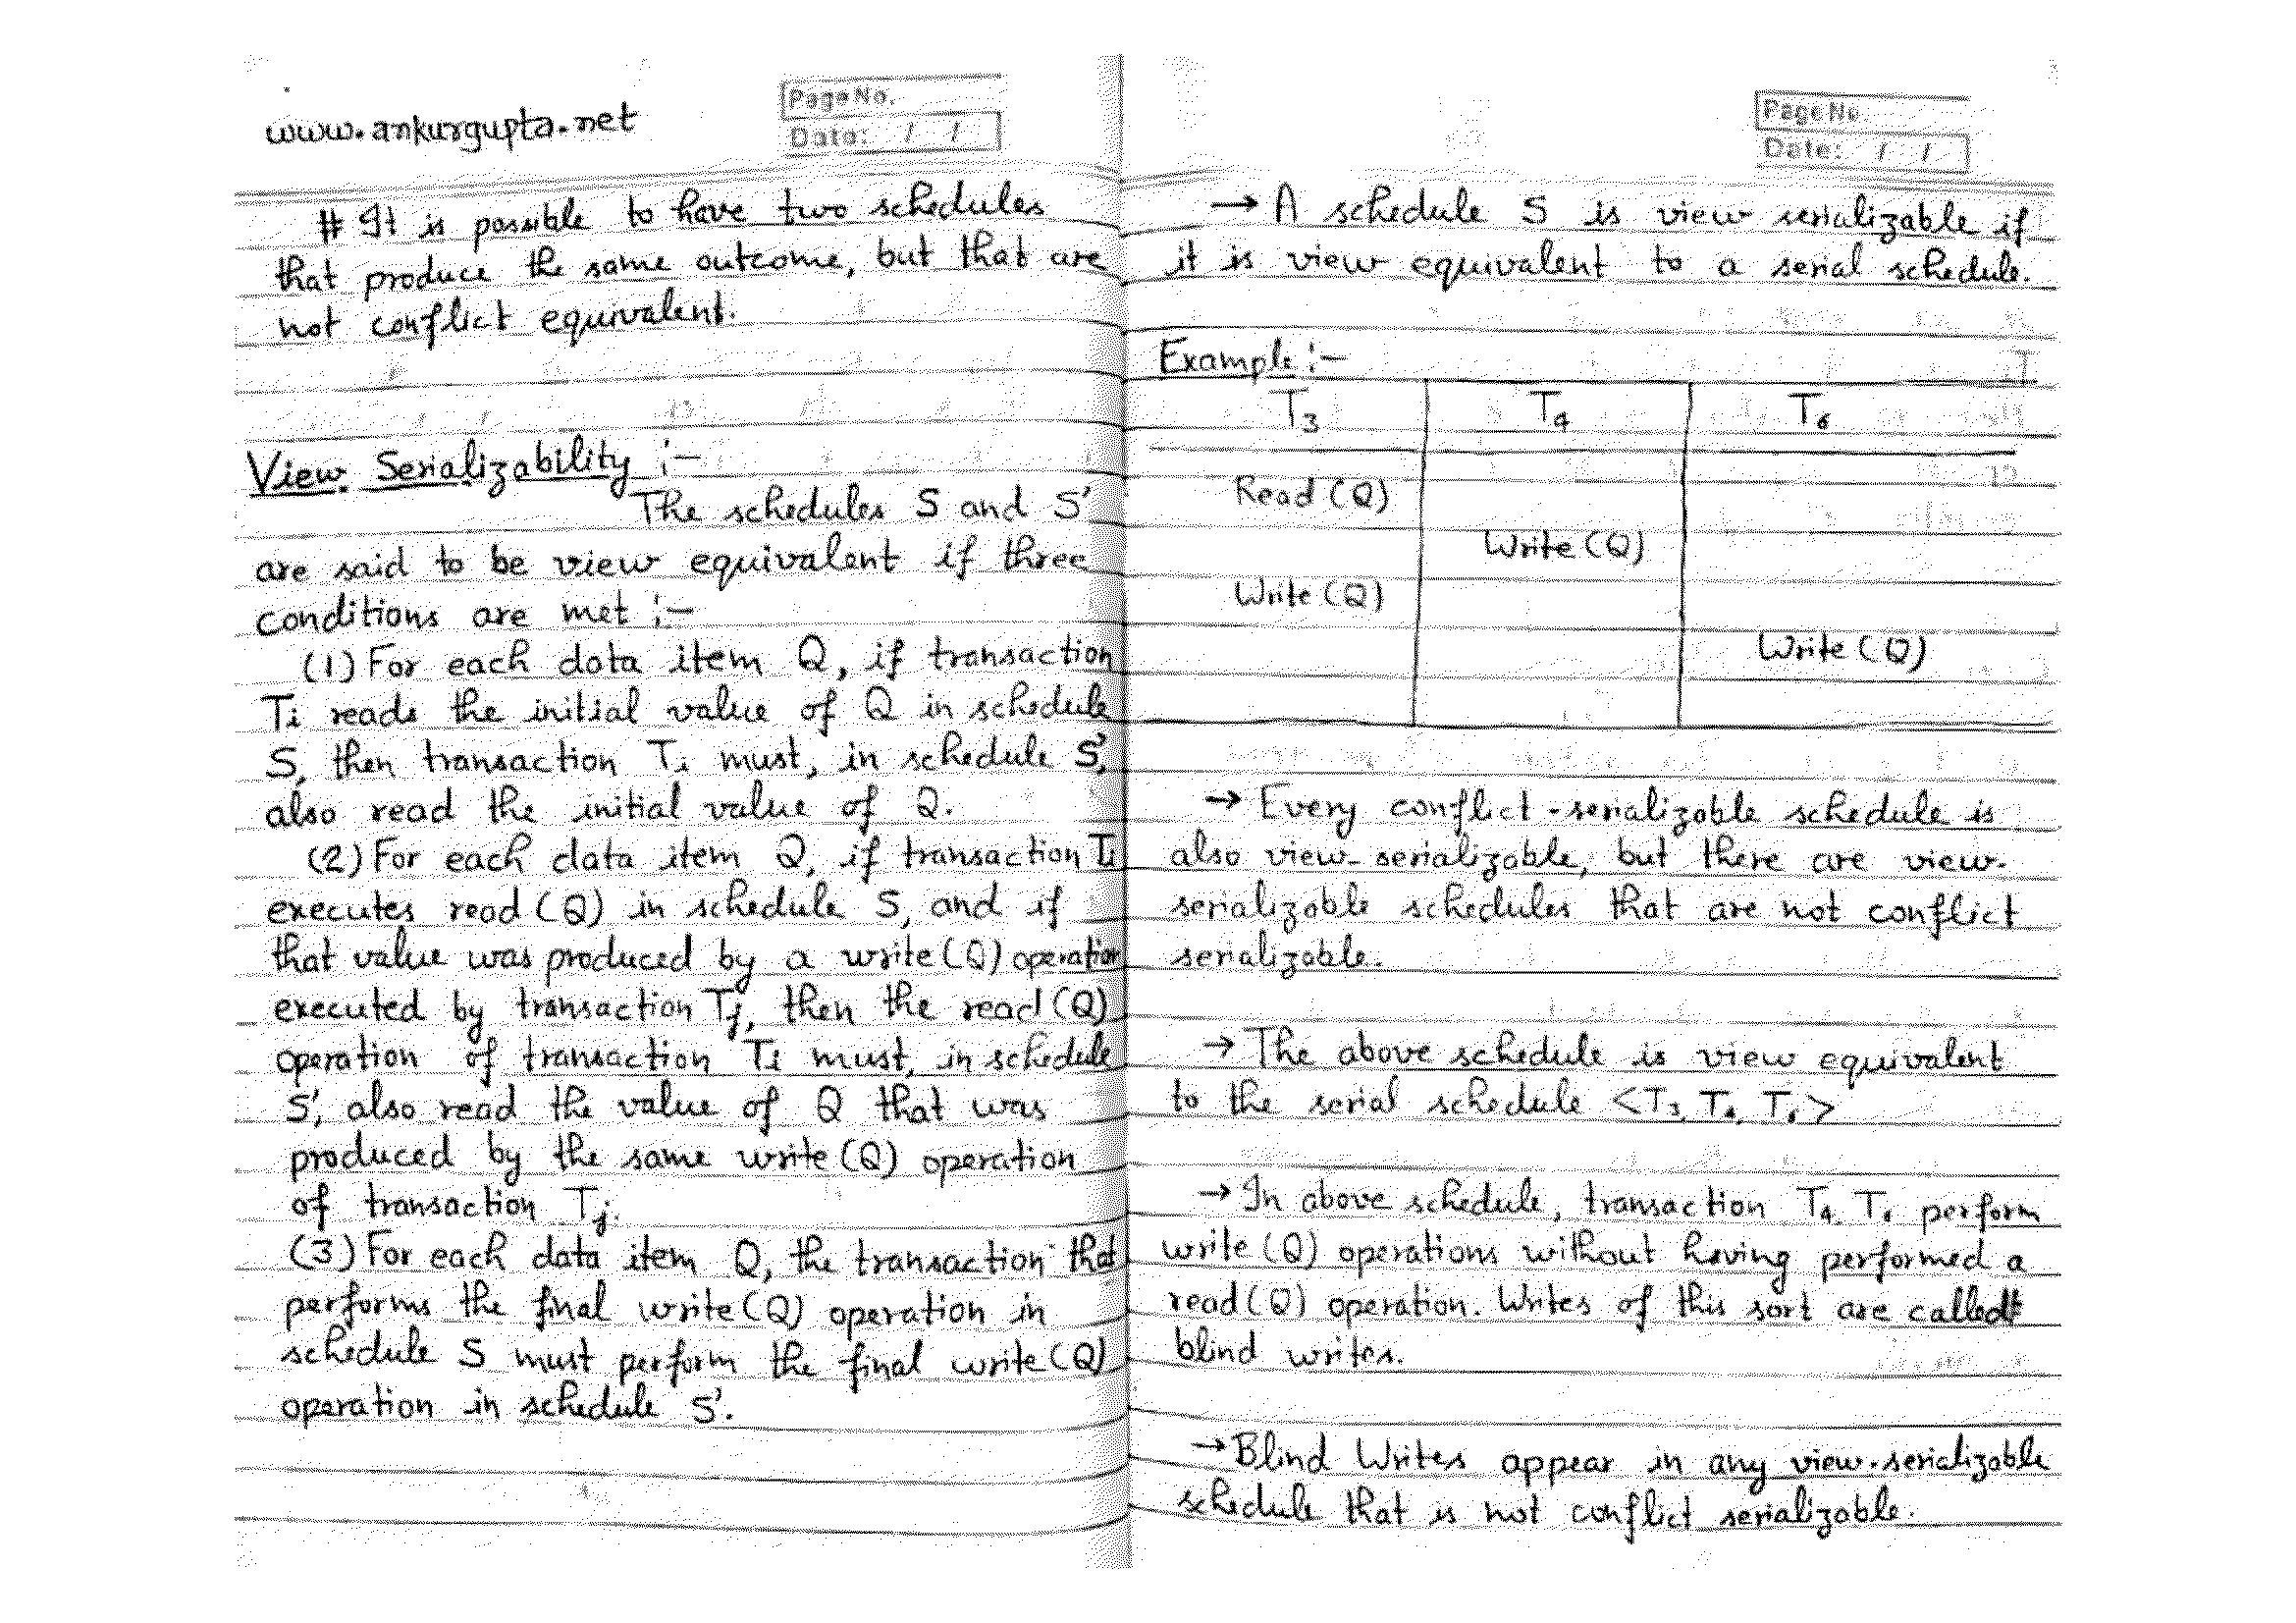 www.ankurgupta.net
Page No.
Date: / /
# It is possible to have two schedules
that produce the same outcome, but that are
not conflict equivalent.
View Serializability :-
The schedules S and S'
are said to be view equivalent if three
conditions are met :-
(1) For each data item Q, if transaction
Ti reads the initial value of Q in schedule
S, then transaction Ti must, in schedule S',
also read the initial value of Q.
(2) For each data item Q, if transaction Ti
executes read (Q) in schedule S, and if
that value was produced by a write (Q) operation
executed by transaction Tj, then the read (Q)
operation of transaction Ti must, in schedule
S', also read the value of Q that was
produced by the same write (Q) operation
of transaction Tj.
(3) For each data item Q, the transaction that
performs the final write (Q) operation in
schedule S must perform the final write (Q)
operation in schedule S'.
Page No.
Date: / /
→ A schedule S is view serializable if
it is view equivalent to a serial schedule.
Example :-
T3 T4 T6
Read (Q)
Write (Q)
Write (Q)
Write (Q)
→ Every conflict-serializable schedule is
also view-serializable, but there are view-
serializable schedules that are not conflict
serializable.
→ The above schedule is view equivalent
to the serial schedule <T3, T4, T6>
→ In above schedule, transaction T4, T6 perform
write (Q) operations without having performed a
read (Q) operation. Writes of this sort are called
blind writes.
→ Blind Writes appear in any view-serializable
schedule that is not conflict serializable.